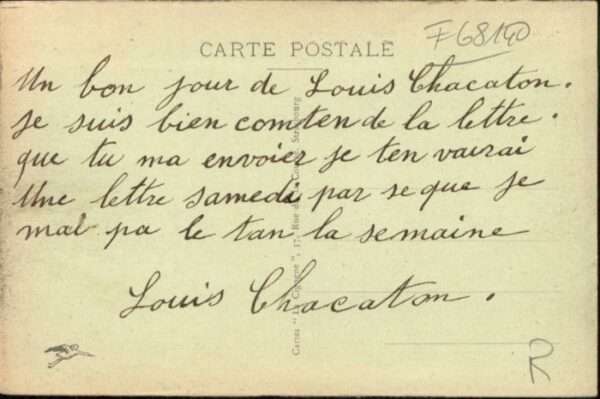 F68140
CARTE POSTALE
Un bon jour de Louis Chacaton.
Je suis bien comten de la lettre.
que tu ma envoier je ten vairai
Une lettre samedi par se que je
mal pa le tan la semaine
Louis Chacaton.
Cartes "La Cigogne", 17, Rue de la Course, Strasbourg
R